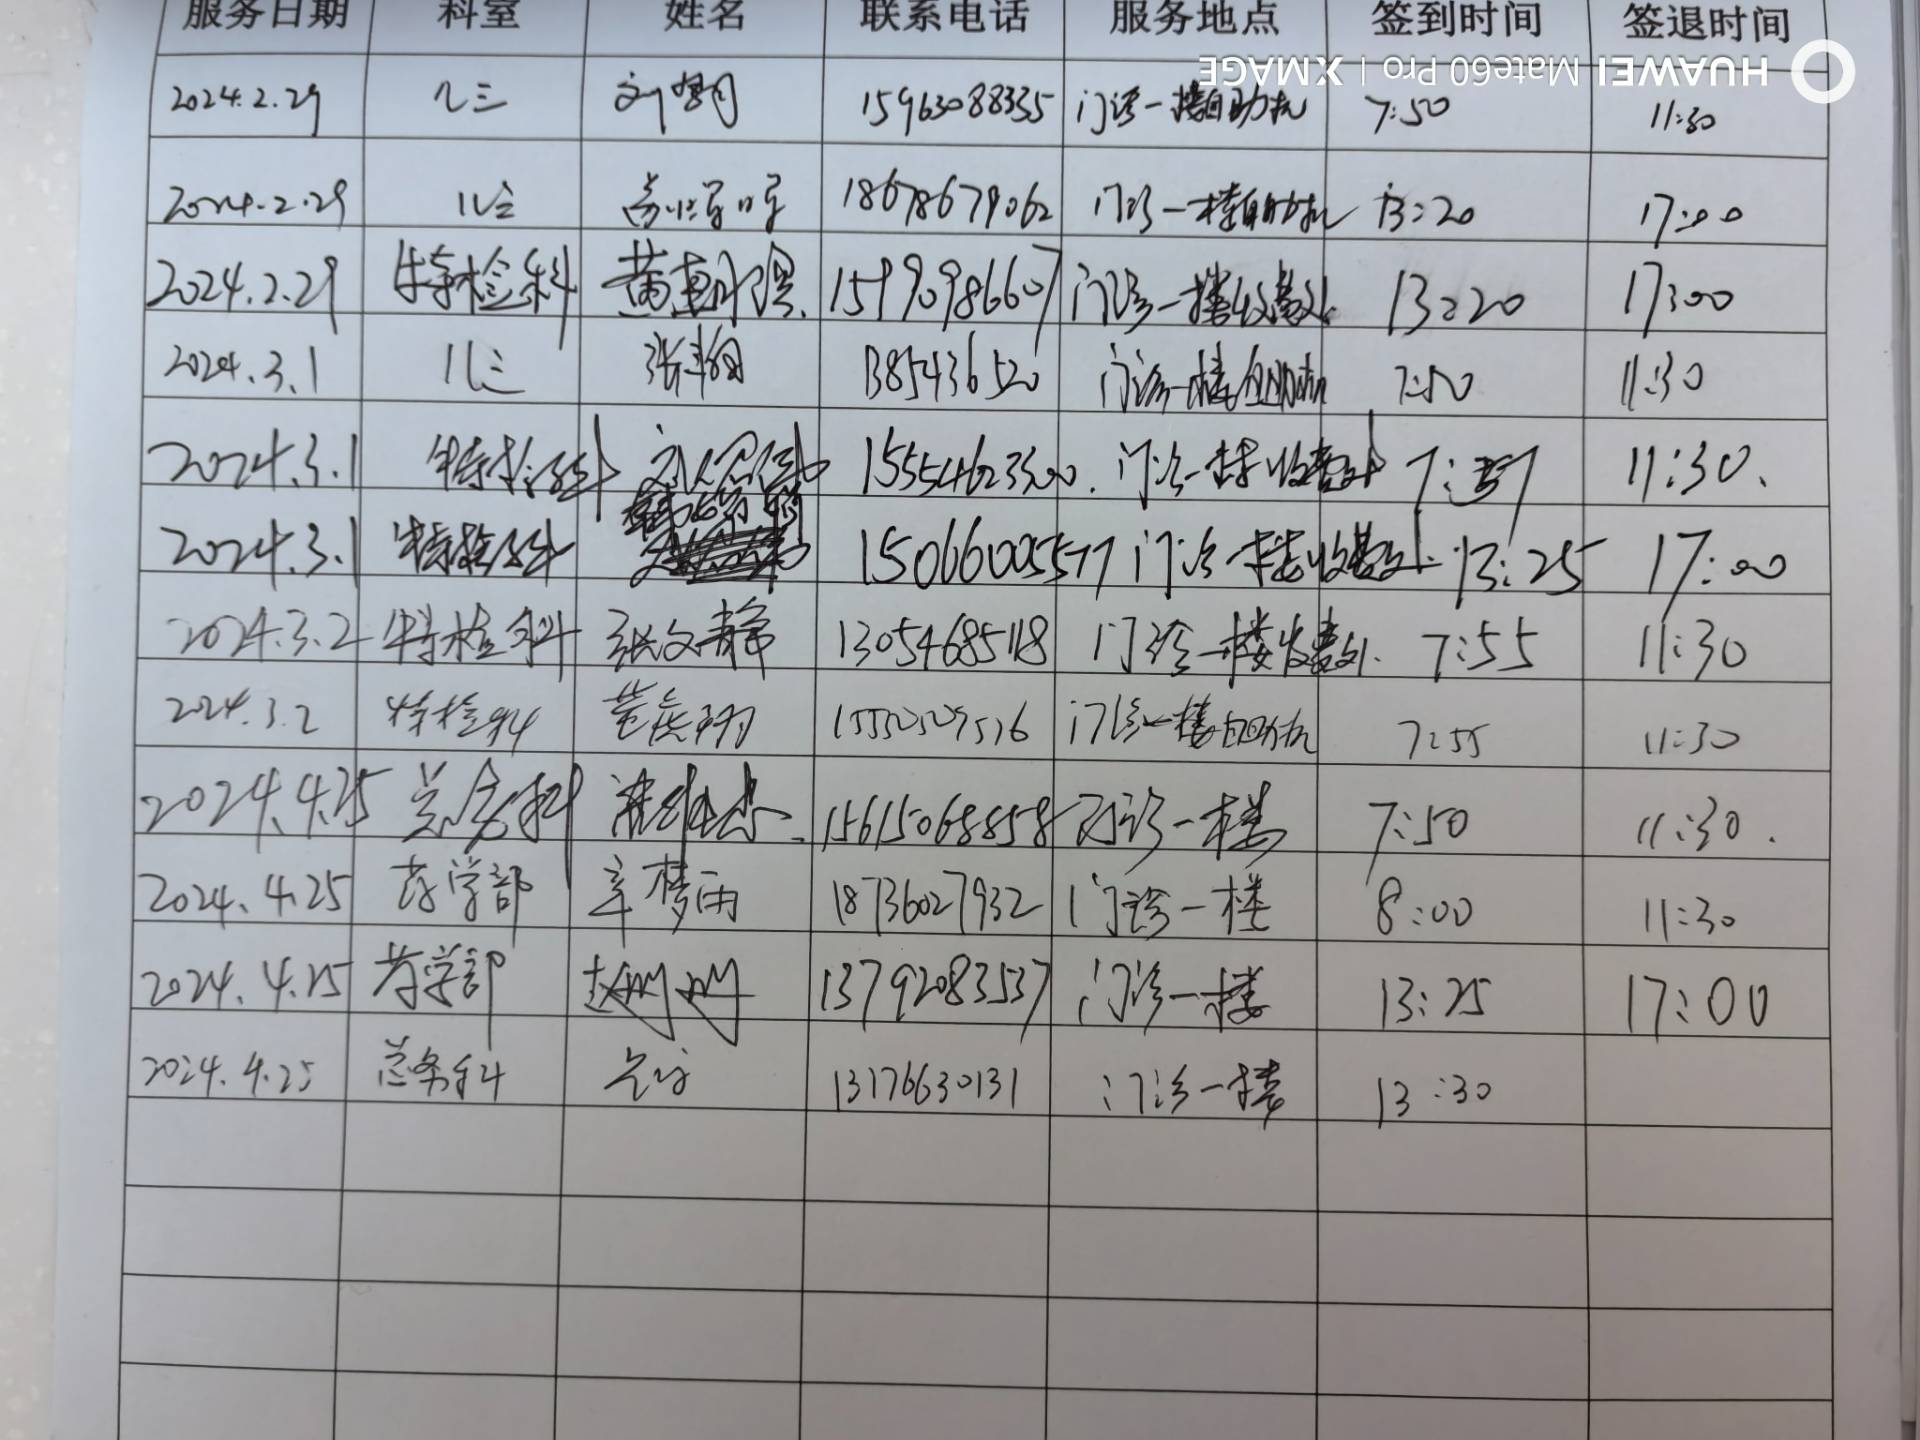 服务日期 科室 姓名 联系电话 服务地点 签到时间 签退时间
HUAWEI Mate60 Pro | XMAGE
2024.2.29 儿三 15963088335 门诊一楼自助机 7:50 11:30
2024.2.29 儿三 18678679062 门诊一楼自助机 13:20 17:00
2024.2.29 特检科 15990986607 门诊一楼收费处 13:20 17:00
2024.3.1 儿三 张翱 13854365 20 门诊一楼自助机 7:50 11:30
2024.3.1 特检科 15554623300 门诊一楼收费处 7:57 11:30
2024.3.1 特检科 15066005577 门诊一楼收费处 13:25 17:00
2024.3.2 特检科 张文静 13054685118 门诊一楼收费处 7:55 11:30
2024.3.2 特检科 15552529516 门诊一楼自助机 7:55 11:30
2024.4.25 总务科 15615068858 门诊一楼 7:50 11:30
2024.4.25 药学部 辛梦雨 18736027932 门诊一楼 8:00 11:30
2024.4.25 药学部 赵姗姗 13792083537 门诊一楼 13:25 17:00
2024.4.25 总务科 13176630131 门诊一楼 13:30